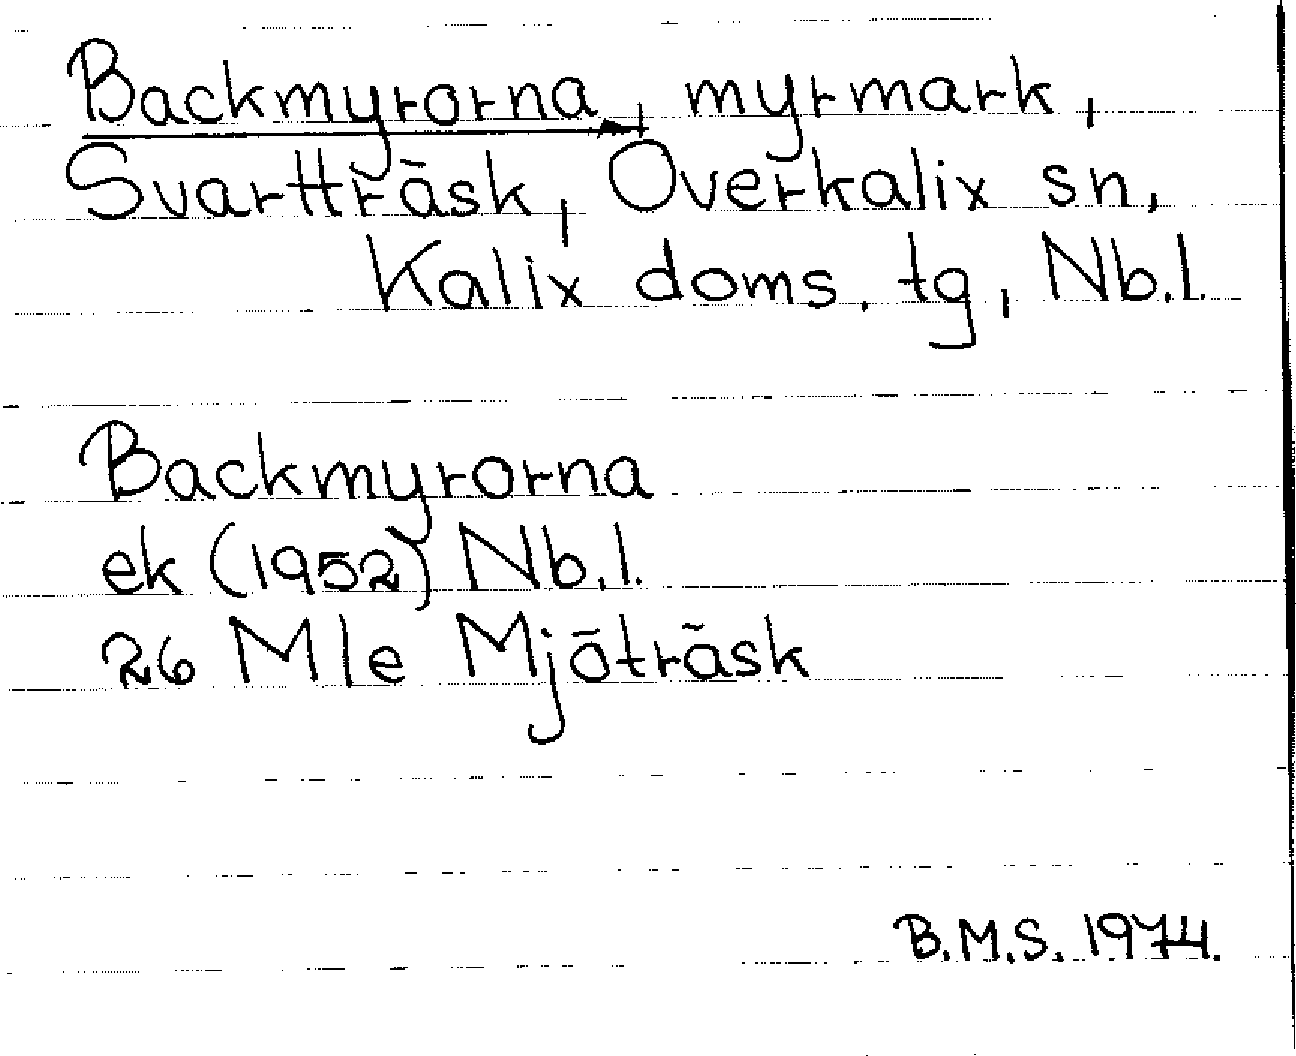 Backmyrorna, myrmark,
Svartträsk, Överkalix sn,
Kalix doms. tg, Nb.l.
Backmyrorna
ek (1952) Nb.l.
26 Mle Mjöträsk
B.M.S. 1974.